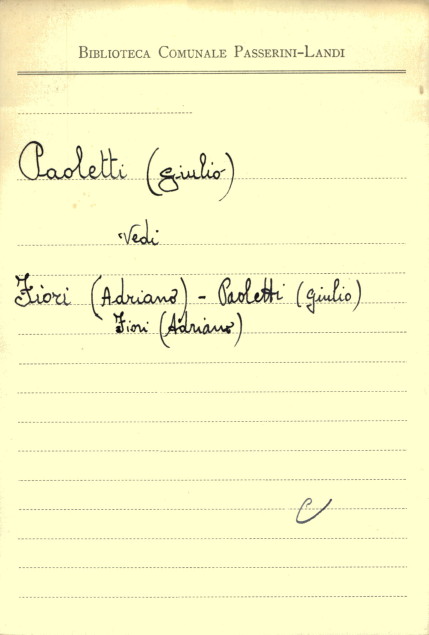 Biblioteca Comunale Passerini-Landi
Paoletti (Giulio)
Vedi
Fiori (Adriano) - Paoletti (Giulio)
Fiori (Adriano)
C